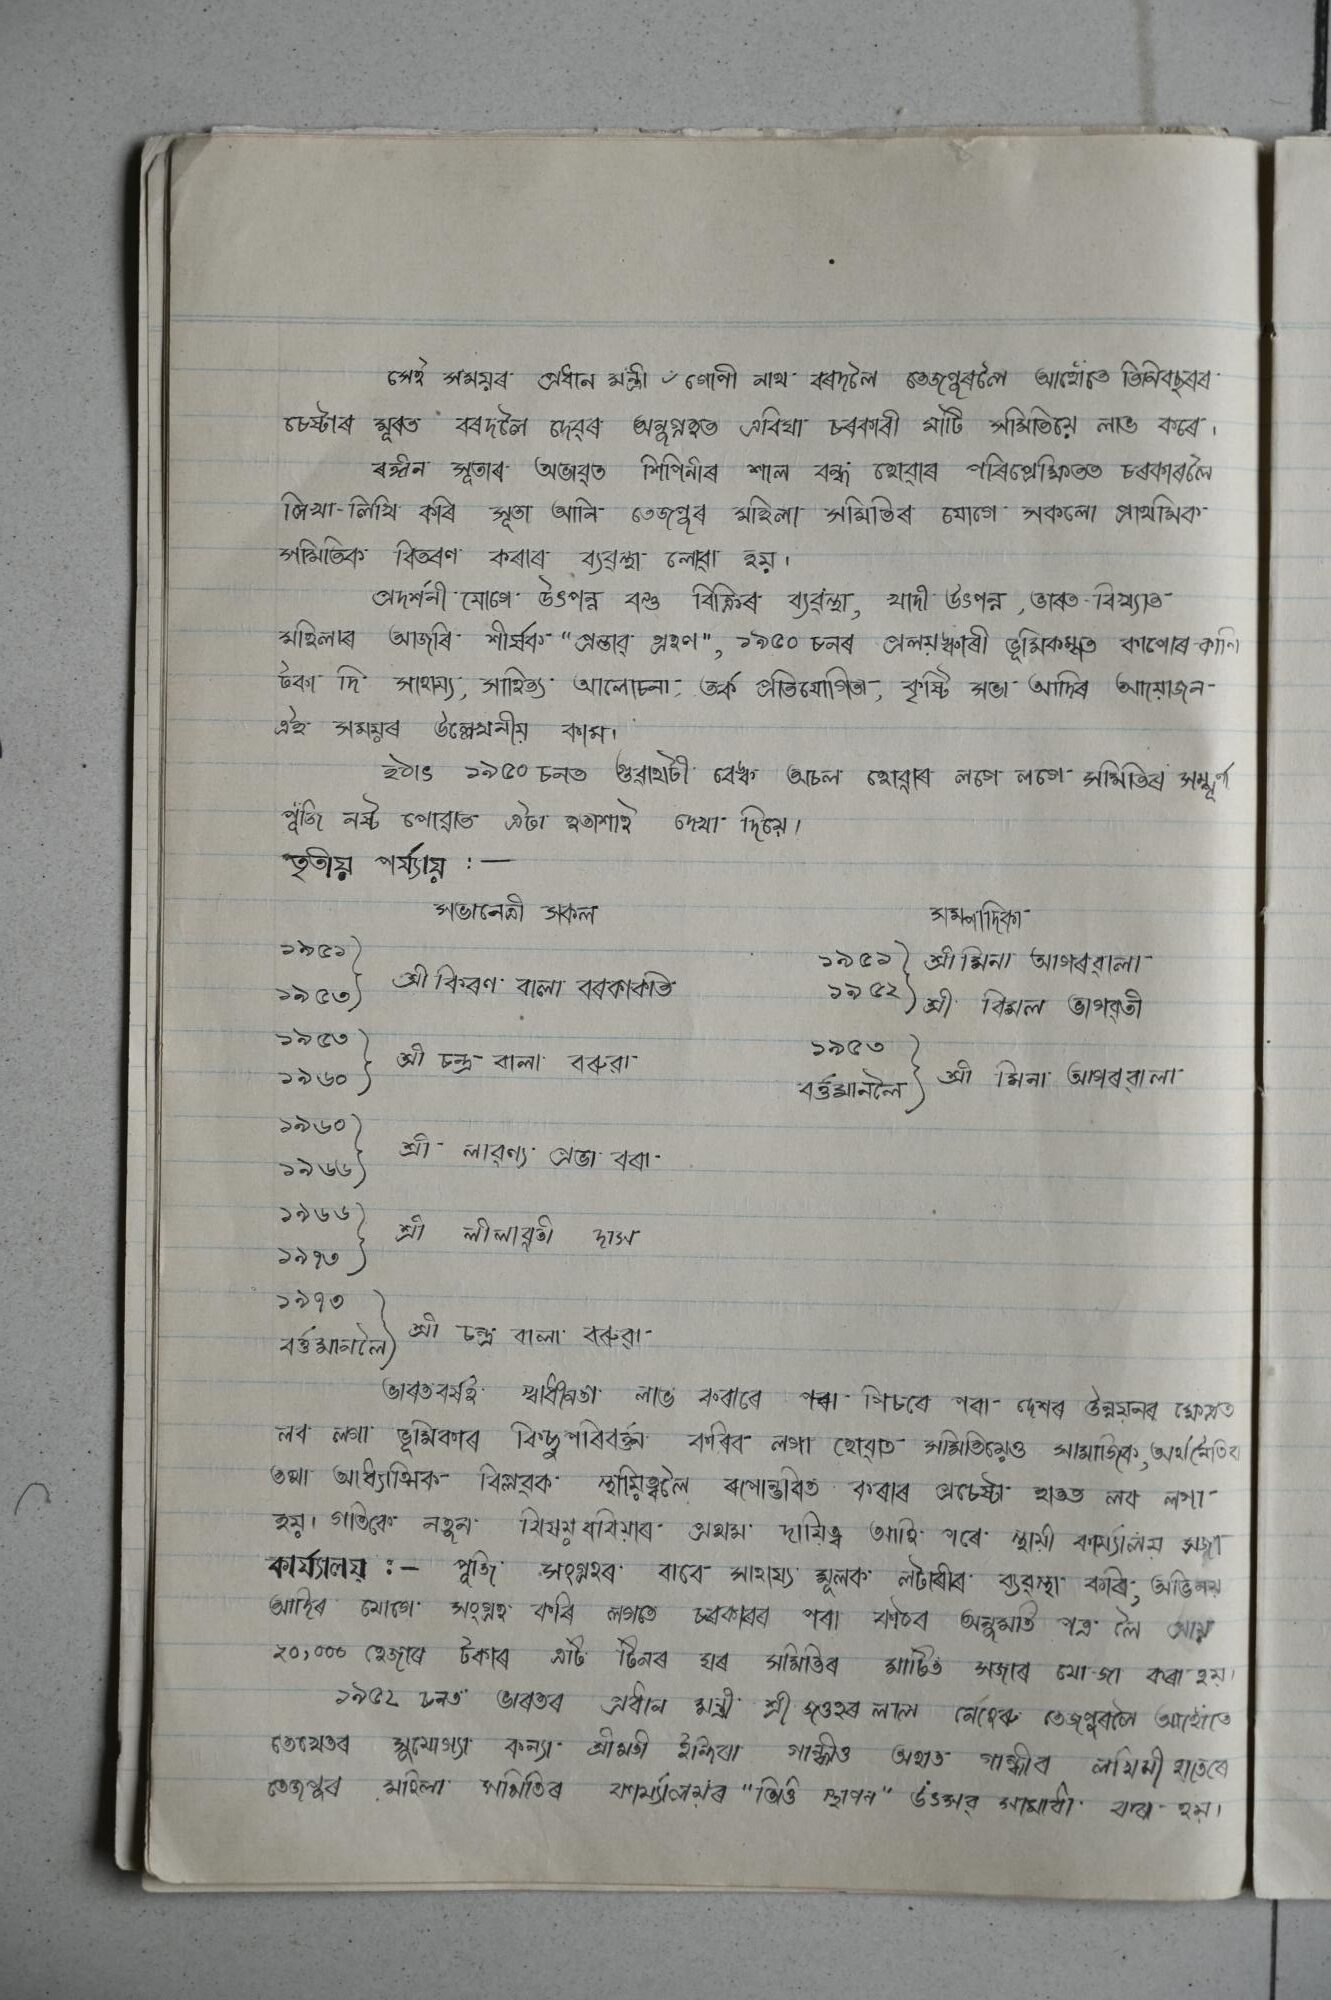 সেই সময়ৰ প্ৰধান মন্ত্ৰী ৺গোপী নাথ বৰদলৈ তেজপুৰলৈ আহোঁতে তিনিবছৰৰ
চেষ্টাৰ মূৰত বৰদলৈ দেৱৰ অনুগ্ৰহত এবিঘা চৰকাৰী মাটি সমিতিয়ে লাভ কৰে।
ৰঙ্গীন সূতাৰ অভাৱত শিপিনীৰ শাল বন্ধ হোৱাৰ পৰিপ্ৰেক্ষিতত চৰকাৰলৈ
লিখা-লিখি কৰি সূতা আনি তেজপুৰ মহিলা সমিতিৰ যোগে সকলো প্ৰাথমিক
সমিতিক বিতৰণ কৰাৰ ব্যৱস্থা লোৱা হয়।
প্ৰদৰ্শনী যোগে উৎপন্ন বস্তু বিক্ৰিৰ ব্যৱস্থা, খাদী উৎপন্ন, ভাৰত বিখ্যাত
মহিলাৰ আজৰি শীৰ্ষক "প্ৰস্তাৱ গ্ৰহণ", ১৯৫০ চনৰ প্ৰলয়ঙ্কাৰী ভূমিকম্পত কাপোৰ-কানি
টকা দি সাহায্য, সাহিত্য আলোচনা, তৰ্ক প্ৰতিযোগিতা, কৃষ্টি সভা আদিৰ আয়োজন
এই সময়ৰ উল্লেখনীয় কাম।
হঠাৎ ১৯৫০ চনত গুৱাহাটী বেঙ্ক অচল হোৱাৰ লগে লগে সমিতিৰ সম্পূৰ্ণ
পুঁজি নষ্ট পোৱাত এটা হতাশাই দেখা দিয়ে।
তৃতীয় পৰ্য্যায় :—
সভানেত্ৰী সকল সম্পাদিকা
১৯৫১
১৯৫৩ শ্ৰী কিৰণ বালা বৰকাকতি
১৯৫১ শ্ৰী মিনা আগৰৱালা
১৯৫২ শ্ৰী বিমল ভাগৱতী
১৯৫৩
১৯৬০ শ্ৰী চন্দ্ৰ বালা বৰুৱা
১৯৫৩
বৰ্ত্তমানলৈ শ্ৰী মিনা আগৰৱালা
১৯৬০
১৯৬৬ শ্ৰী লাৱণ্য প্ৰভা বৰা
১৯৬৬
১৯৭৩ শ্ৰী লীলাৱতী দাস
১৯৭৩
বৰ্ত্তমানলৈ শ্ৰী চন্দ্ৰ বালা বৰুৱা
ভাৰতবৰ্ষই স্বাধীনতা লাভ কৰাৰে পৰা পিচৰে পৰা দেশৰ উন্নয়নৰ ক্ষেত্ৰত
লব লগা ভূমিকাৰ কিছু পৰিবৰ্ত্তন কৰিব লগা হোৱাত সমিতিয়েও সামাজিক, অৰ্থনৈতিক
তথা আধ্যাত্মিক বিপ্লৱক স্থায়িত্বলৈ ৰূপান্তৰিত কৰাৰ প্ৰচেষ্টা হাতত লব লগা
হয়। গতিকে নতুন প্ৰথম দায়িত্ব আহি পৰে স্থায়ী কাৰ্য্যালয় সজা
কাৰ্য্যালয় :— পুজি সংগ্ৰহৰ বাবে সাহায্য মূলক লটাৰীৰ ব্যৱস্থা কৰি, অভিনয়
আদিৰ যোগে সংগ্ৰহ কৰি লগতে চৰকাৰৰ পৰা কাঠৰ অনুমতি পত্ৰ লৈ প্ৰায়
২০,০০০ হেজাৰ টকাৰ এটি টিনৰ ঘৰ সমিতিৰ মাটিত সজাৰ যো-জা কৰা হয়।
১৯৫২ চনত ভাৰতৰ প্ৰধান মন্ত্ৰী শ্ৰী জওহৰ লাল নেহেৰু তেজপুৰলৈ আহোঁতে
তেখেতৰ সুযোগ্যা কন্যা শ্ৰীমতী ইন্দিৰা গান্ধীও অহাত গান্ধীৰ লখিমী হাতেৰে
তেজপুৰ মহিলা সমিতিৰ কাৰ্য্যালয়ৰ "ভিত্তি স্থাপন" উৎসৱ সামাধা কৰা হয়।